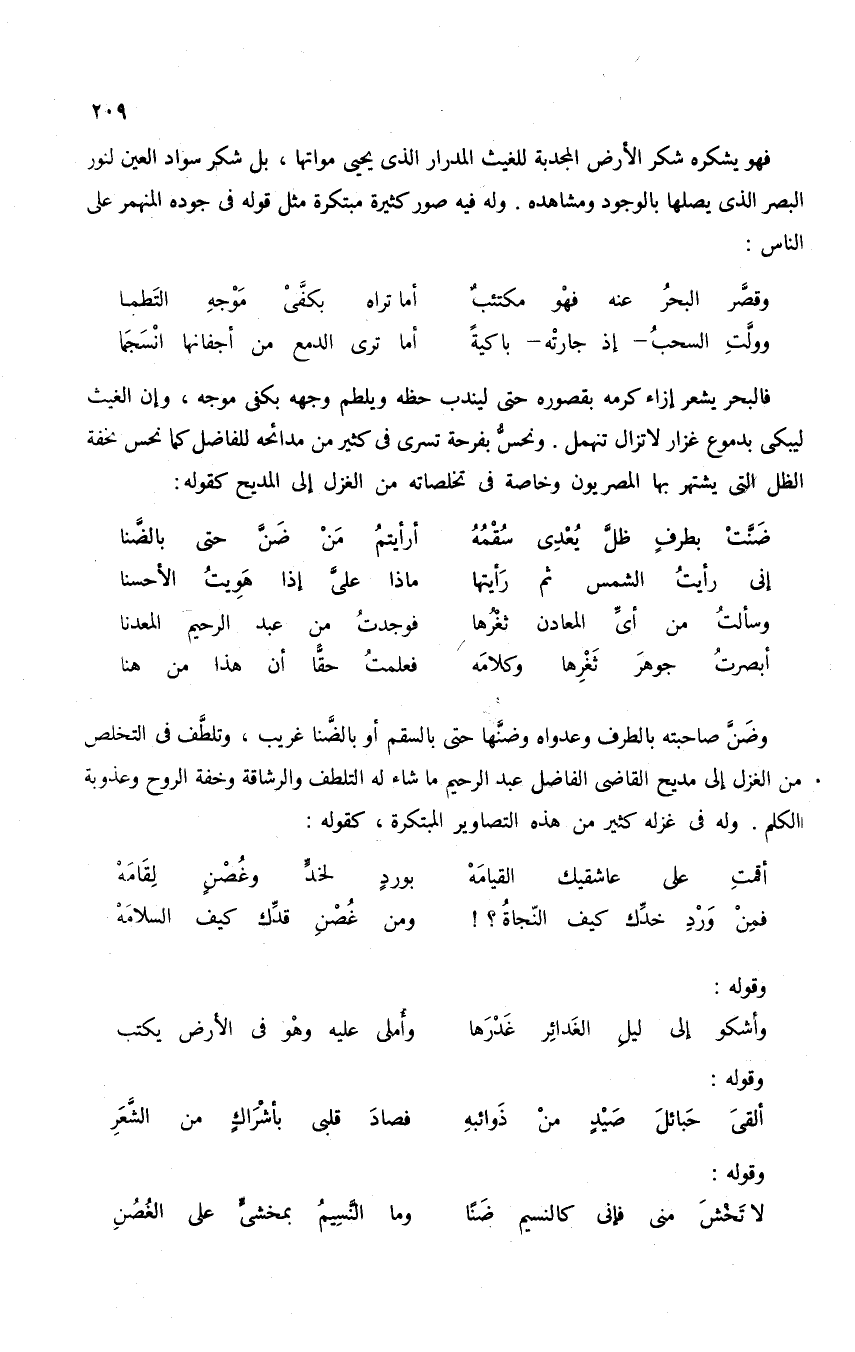 ٢٠٩
فهو يشكره شكر الأرض المجدبة للغيث المدرار الذى يحيى مواتها ، بل شكر سواد العين لنور
البصر الذى يصلها بالوجود ومشاهده . وله فيه صور كثيرة مبتكرة مثل قوله فى جوده المنهمر على
الناس :
وقصَّر البحرُ عنه فهْو مكتئبٌ أما تراه بكفَّىْ مَوْجهِ التَطما
وولَّتِ السحبُ – إذ جارتْه – باكيةً أما ترى الدمع من أجفانها انْسَجَما
فالبحر يشعر إزاء كرمه بقصوره حتى ليندب حظه ويلطم وجهه بكفى موجه ، وإن الغيث
ليبكى بدموع غزار لاتزال تنهمل . ونحسُّ بفرحة تسرى فى كثير من مدائحه للفاضل كما نحس بخفة
الظل التى يشتهر بها المصريون وخاصة فى تخلصاته من الغزل إلى المديح كقوله :
ضَنَّتْ بطرفٍ ظلَّ يُعْدِى سُقْمُهُ أرأيتمُ مَنْ ضَنَّ حتى بالضَّنا
إنى رأيتُ الشمس ثم رَأيتها ماذا علىَّ إذا هَوِيتُ الأحسنا
وسألتُ من أىِّ المعادن ثغْرُها فوجدتُ من عبد الرحيم المعدنا
أبصرتُ جوهرَ ثَغْرِها وكلامَه فعلمتُ حقًّا أن هذا من هنا
وضَنَّ صاحبته بالطرف وعدواه وضنَّها حتى بالسقم أو بالضَّنا غريب ، وتلطَّف فى التخلص
من الغزل إلى مديح القاضى الفاضل عبد الرحيم ما شاء له التلطف والرشاقة وخفة الروح وعذوبة
الكلم . وله فى غزله كثير من هذه التصاوير المبتكرة ، كقوله :
أقمتِ على عاشقيك القيامَهْ بوردٍ لخدٍّ وغُصْنٍ لِقَامَهْ
فمِنْ وَرْدِ خدِّك كيف النّجاةُ ؟ ! ومن غُصْنِ قدِّك كيف السلامَهْ
وقوله :
وأشكو إلى ليلِ الغَدائِر غَدْرَها وأُملى عليه وهْو فى الأرض يكتب
وقوله :
ألقىَ حَبائلَ صَيْدٍ منْ ذَوائبهِ فصادَ قلبى بأشْراكٍ من الشَّعَرِ
وقوله :
لا تَخْشَ منى فإنى كالنسيم ضَنًا وما النَّسِيمُ بمخشىٍّ على الغُصُنِ